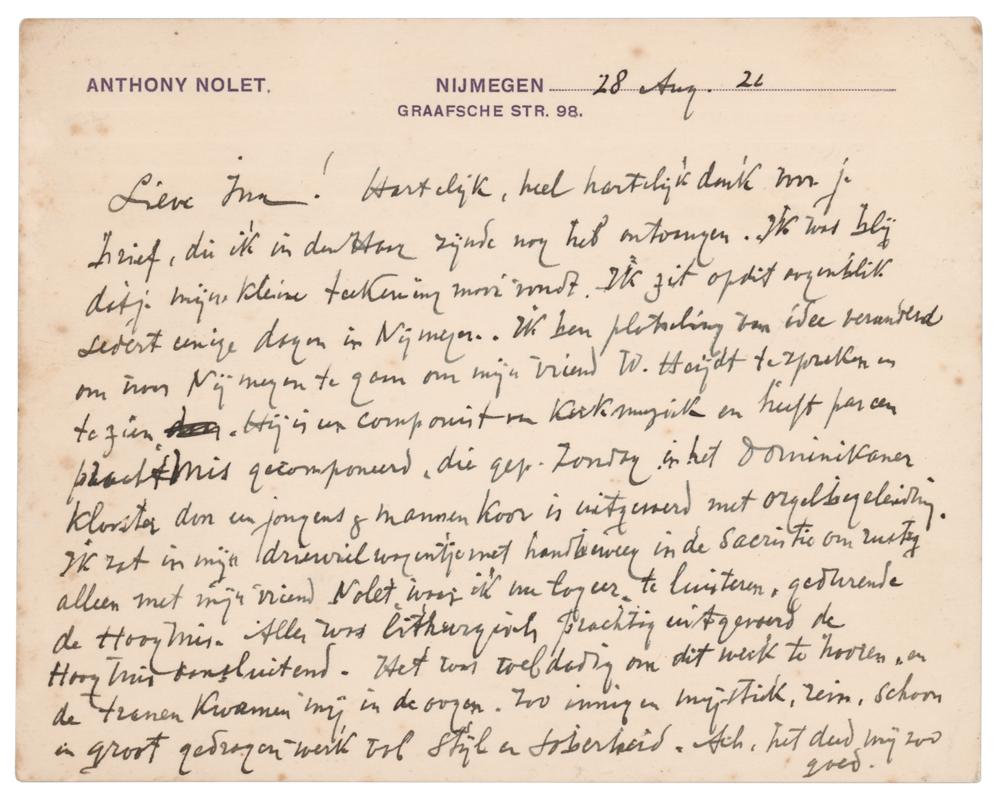 ANTHONY NOLET.
NIJMEGEN 28 Aug. 26
GRAAFSCHE STR. 98.
Lieve Ina! Hartelijk, heel hartelijk dank voor je
brief, die ik in den Haag zijnde nog heb ontvangen. Ik was blij
dat je mijn kleine teekening mooi vondt. Ik zit op dit oogenblik
sedert eenige dagen in Nijmegen. Ik ben plotseling van idee veranderd
om naar Nijmegen te gaan om mijn vriend W. Heijdt te spreken en
te zien. Hij is een componist van Kerkmuziek en heeft pas een
pracht Mis gecomponeerd, die gep. Zondag in het Dominikaner
Klooster door een jongens & mannen Koor is uitgevoerd met orgelbegeleiding.
Ik zat in mijn driewielwagentje met handbeweeg in de Sacristie om rustig
alleen met mijn vriend Nolet, waar ik nu logeer, te luisteren, gedurende
de Hoogmis. Alles was lithurgisch prachtig uitgevoerd de
Hoogmis aansluitend. Het was weldadig om dit werk te hooren, en
de tranen Kwamen mij in de oogen. Zoo innig en mystiek, rein, schoon
en groot gedragen werk vol stijl en soberheid. Ach, het deed mij zoo
goed.